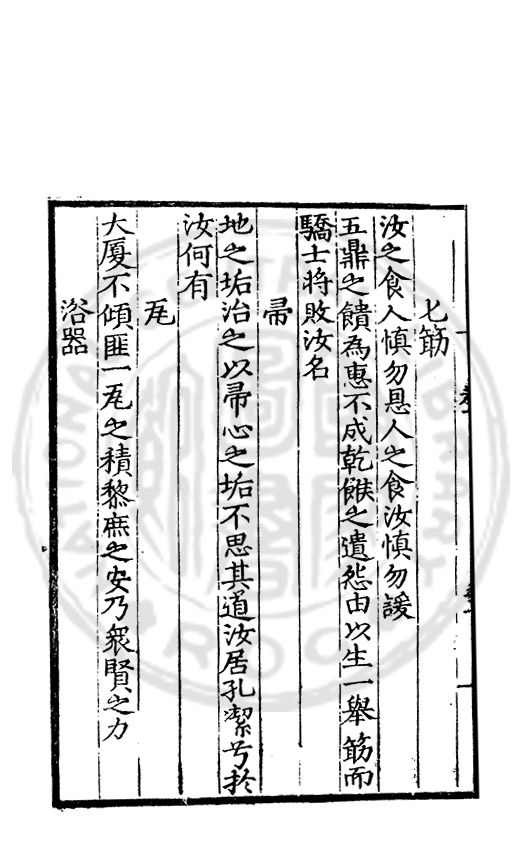 匕筯
汝之食人慎勿恩人之食汝慎勿諼
五鼎之饋為惠不成乾餱之遺怨由以生一舉筯而
驕士將敗汝名
帚
地之垢治之以帚心之垢不思其道汝居孔潔兮於
汝何有
瓦
大厦不傾匪一瓦之積黎庶之安乃衆賢之力
浴器